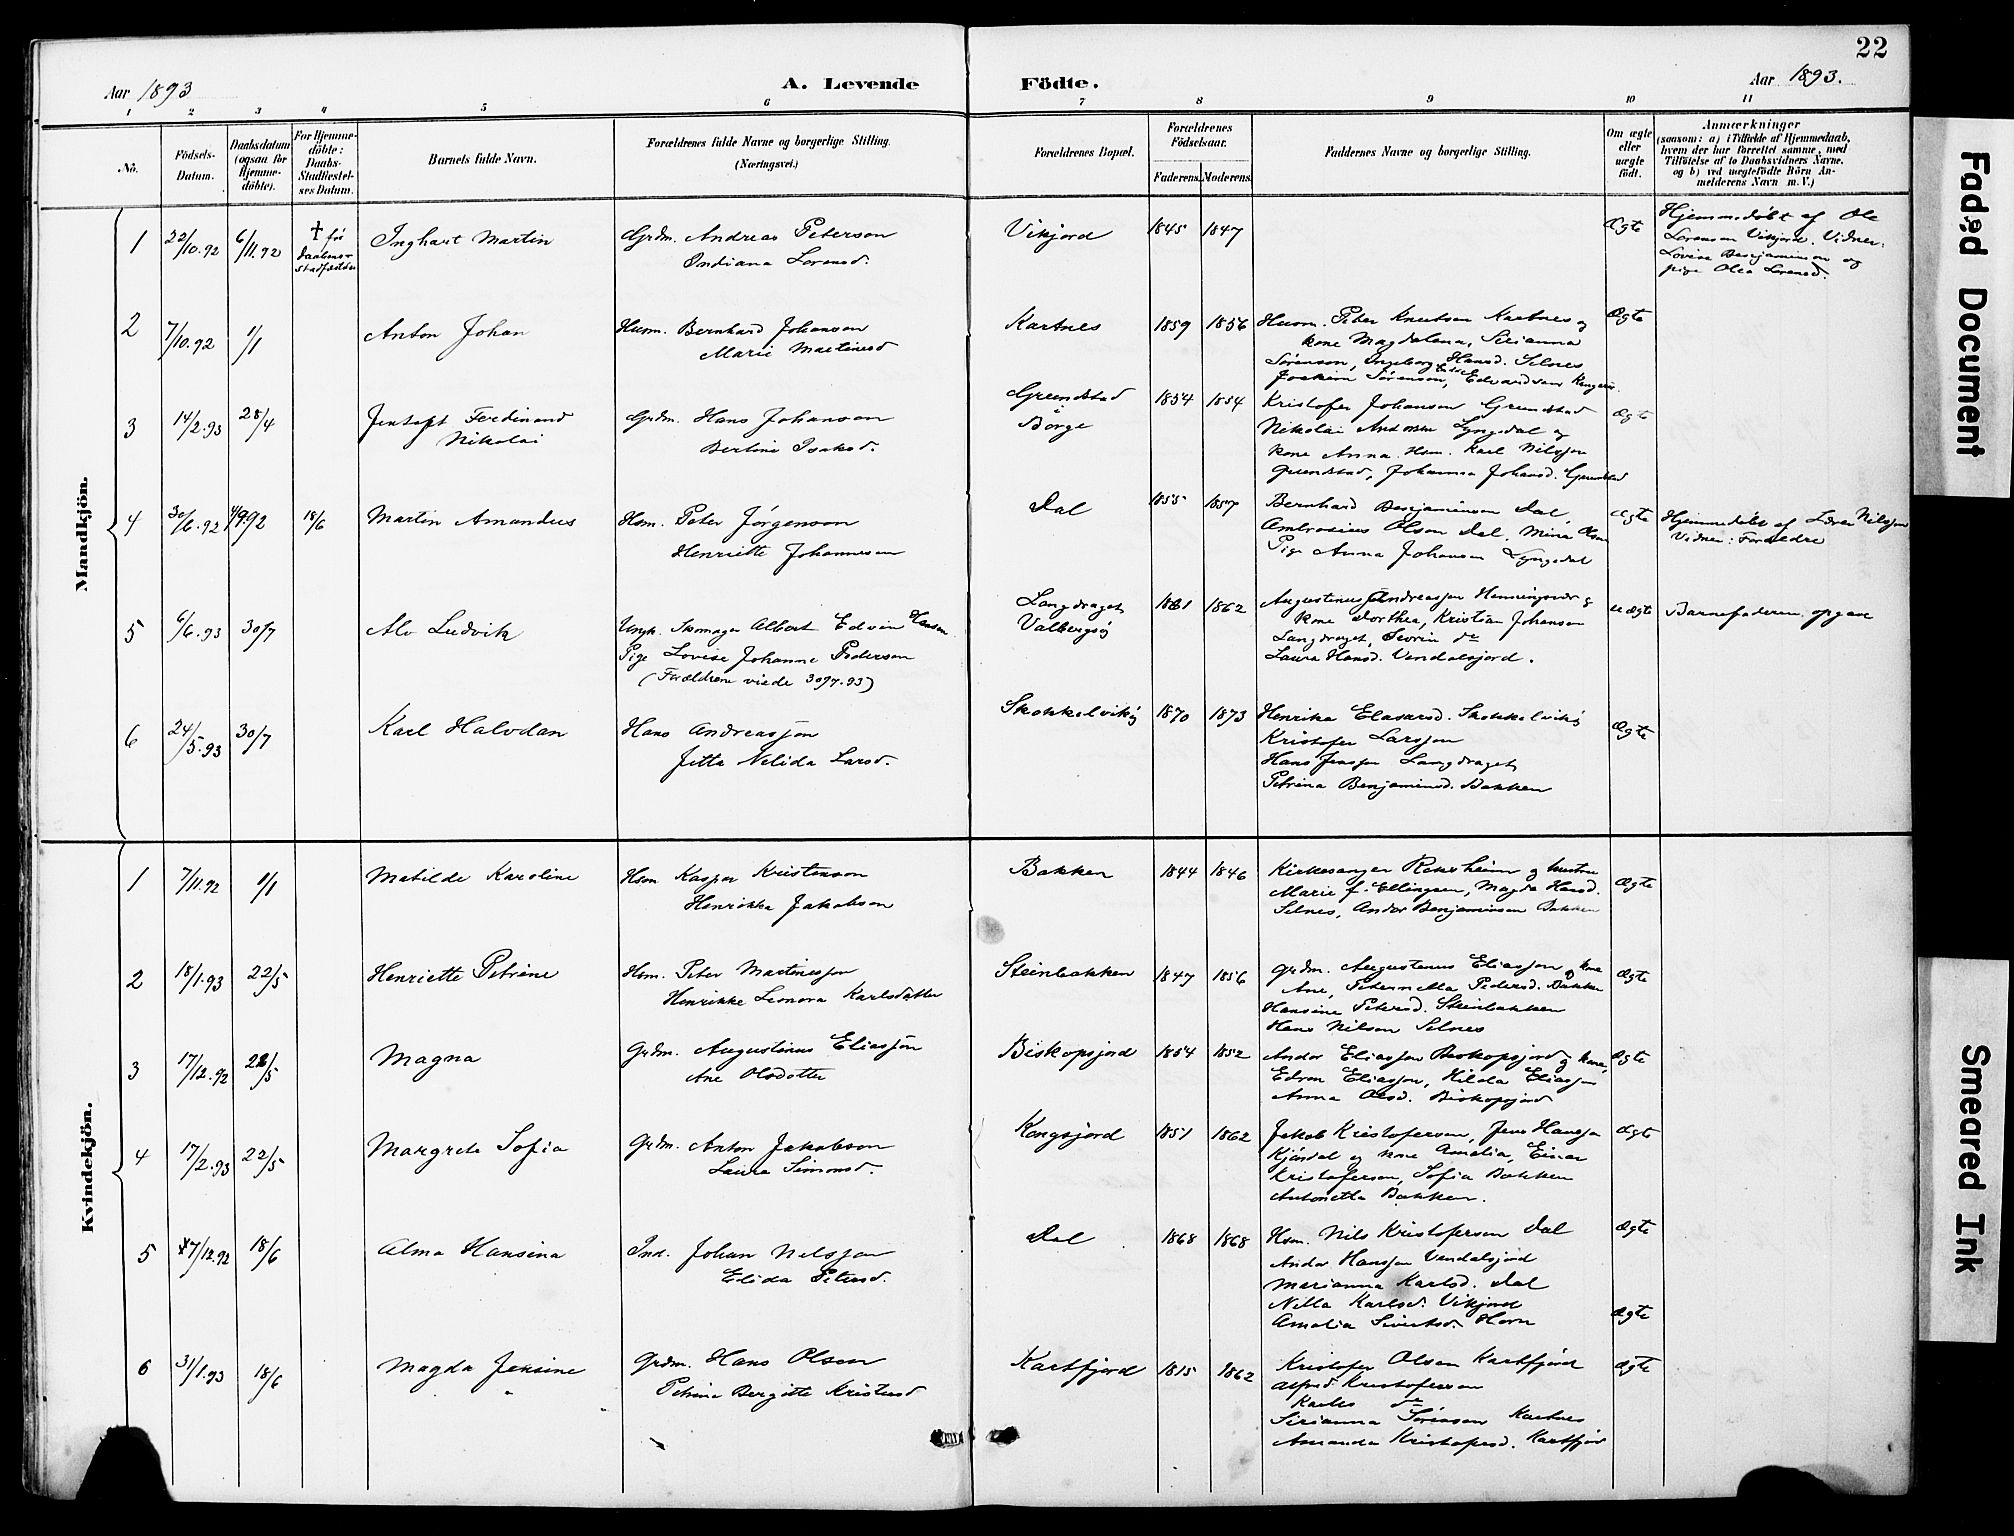 22
Aar 1893
A. Levende Födte.
Aar 1893.
1 2 3 4 5 6 7 8 9 10 11
No.
Födsels-
Datum.
Daabsdatum
(ogsaa for
Hjemme-
döbte).
For Hjemme-
döbte:
Daabs-
Stadfæstel-
ses Datum.
Barnets fulde Navn.
Forældrenes fulde Navne og borgerlige Stilling.
(Næringsvei.)
Forældrenes Bopæl.
Forældrenes
Födselsaar.
Faderens. Moderens.
Faddernes Navne og borgerlige Stilling.
Om ægte
eller
uægte
födt.
Anmærkninger
(saasom: a) i Tilfælde af Hjemmedaab,
hvem der har forrettet samme, med
Tilföielse af to Daabsvidners Navne,
og b) ved uægtefödte Börn An-
melderens Navn m. V.)
Mandkjön.
1 22/10.92 6/11.92 † før
Daabens
stadfæstelse
Inghart Martin
Grdm. Andreas Peterson
Indiana Lorensd.
Vikjord 1845 1847
Ægte
Hjemmedøbt af Ole
Lorenson Vikjord. Vidner:
Lovise Benjaminson og
pige Olea Lorensd.
2 7/10.92 1/1 Anton Johan
Husm. Bernhard Johanson
Marie Martinusd
Kartnes 1859 1856
Husm. Peter Knutson Kartnes og
kone Magdalena, Serianna
Sørenson, Ingeborg Hansd. Selnes
Joakim Sørenson, Edvardson
Ægte
3 14/2.93 28/4 Jentoft Ferdinand
Nikolai
Grdm. Hans Johanson
Bertine Isaksd.
Grundstad
i
Borge
1854 1854
Kristofer Johanson Grundstad
Nikolai Lyngedal og
kone Anna. Hsm. Karl Nilsson
Grundstad, Johanna Johansd. Grundstad
Ægte
4 30/6.92 4/9.92 18/6 Martin Amandus
Hsm. Peter Jørgenson
Henriette Johanneson
Dal 1855 1857
Bernhard Benjaminson Dal
Ambrosius Olson Dal, Mina Olson
Pige Anna Johanson Lyngedal
Ægte
Hjemmedøbt af Lærer Nilsson
Vidner: Forældre
5 6/6.93 30/7 Alv Ludvik
Ungk. Skomager Albert Edvin Hanson
Pige Lovise Johanne Pederson
(Forældrene viede 30/7.93)
Langdraget
Valbergsø
1861 1862
Augustinus Andreassen Henningsvær og
kone Dorthea, Kristian Johanson
Langdraget, Severin do
Laura Hansd. Vendalsjord.
uægte
Barnefaderen opgav
6 24/5.93 30/7 Karl Halvdan
Hans Andreassøn
Jetta Nelida Larsd.
Skokkelvik 1870 1873
Henrika Elasarsd. Skokkelvik
Kristofer Larsson
Hans Jensson Langdraget
Petrina Benjaminsd. Bakken
Ægte
Kvindekjön.
1 7/11.92 1/1 Matilde Karoline
Hsm Kasper Kristenson
Henrikka Jakobson
Bakken 1844 1846
Kirkesanger og hustru
Marie f. Ellingsen, Magda Hansd.
Selnes, Andor Benjaminson Bakken
Ægte
2 18/1.93 22/5 Henriette Petrine
Hsm. Peter Martinesson
Henrikke Leonora Karlsdatter
Steinbakken 1847 1856
Grdm. Augustinus Eliasson og kone
Ane, Peternella Pedersd. Bakken
Hansine Petersd. Steinbakken
Hans Nilson Selnes
Ægte
3 17/12.92 22/5 Magna
Grdm. Augustinus Eliassøn
Ane Olsdotter
Biskopsjord 1854 1852
Andor Eliasson Biskopsjord og kone,
Edvin Eliasson, Hilda Eliasson
Anna Olsd. Biskopsjord
Ægte
4 17/2.93 22/5 Margrete Sofia
Grdm. Anton Jakobson
Laura Simonsd.
Kongsjord 1851 1862
Jakob Kristoferson, Jens Hansson
Kjøsdal og kone Amalia, Einar
Kristoferson, Sofia Bakken
Antonetta Bakken.
Ægte
5 7/12.92 18/6 Alma Hansina
Ind. Johan Nilsson
Elida Petersd.
Dal 1868 1868
Hsm. Nils Kristoferson Dal
Andor Hansson Vendalsjord
Marianna Karlsd. Dal
Nella Karlsd. Vikjord
Amalia Sivertsd. Horn
Ægte
Ægte
6 31/1.93 18/6 Magda Jensine
Grdm. Hans Olson
Petrina Bergitte Kristensd
Kartfjord 1815 1862
Kristofer Olson Kartfjord
Alfred Kristoferson
Karles do
Serianna Sørenson Kartnes
Amanda Kristofersd. Kartfjor
Ægte
Faded Document
Smeared Ink